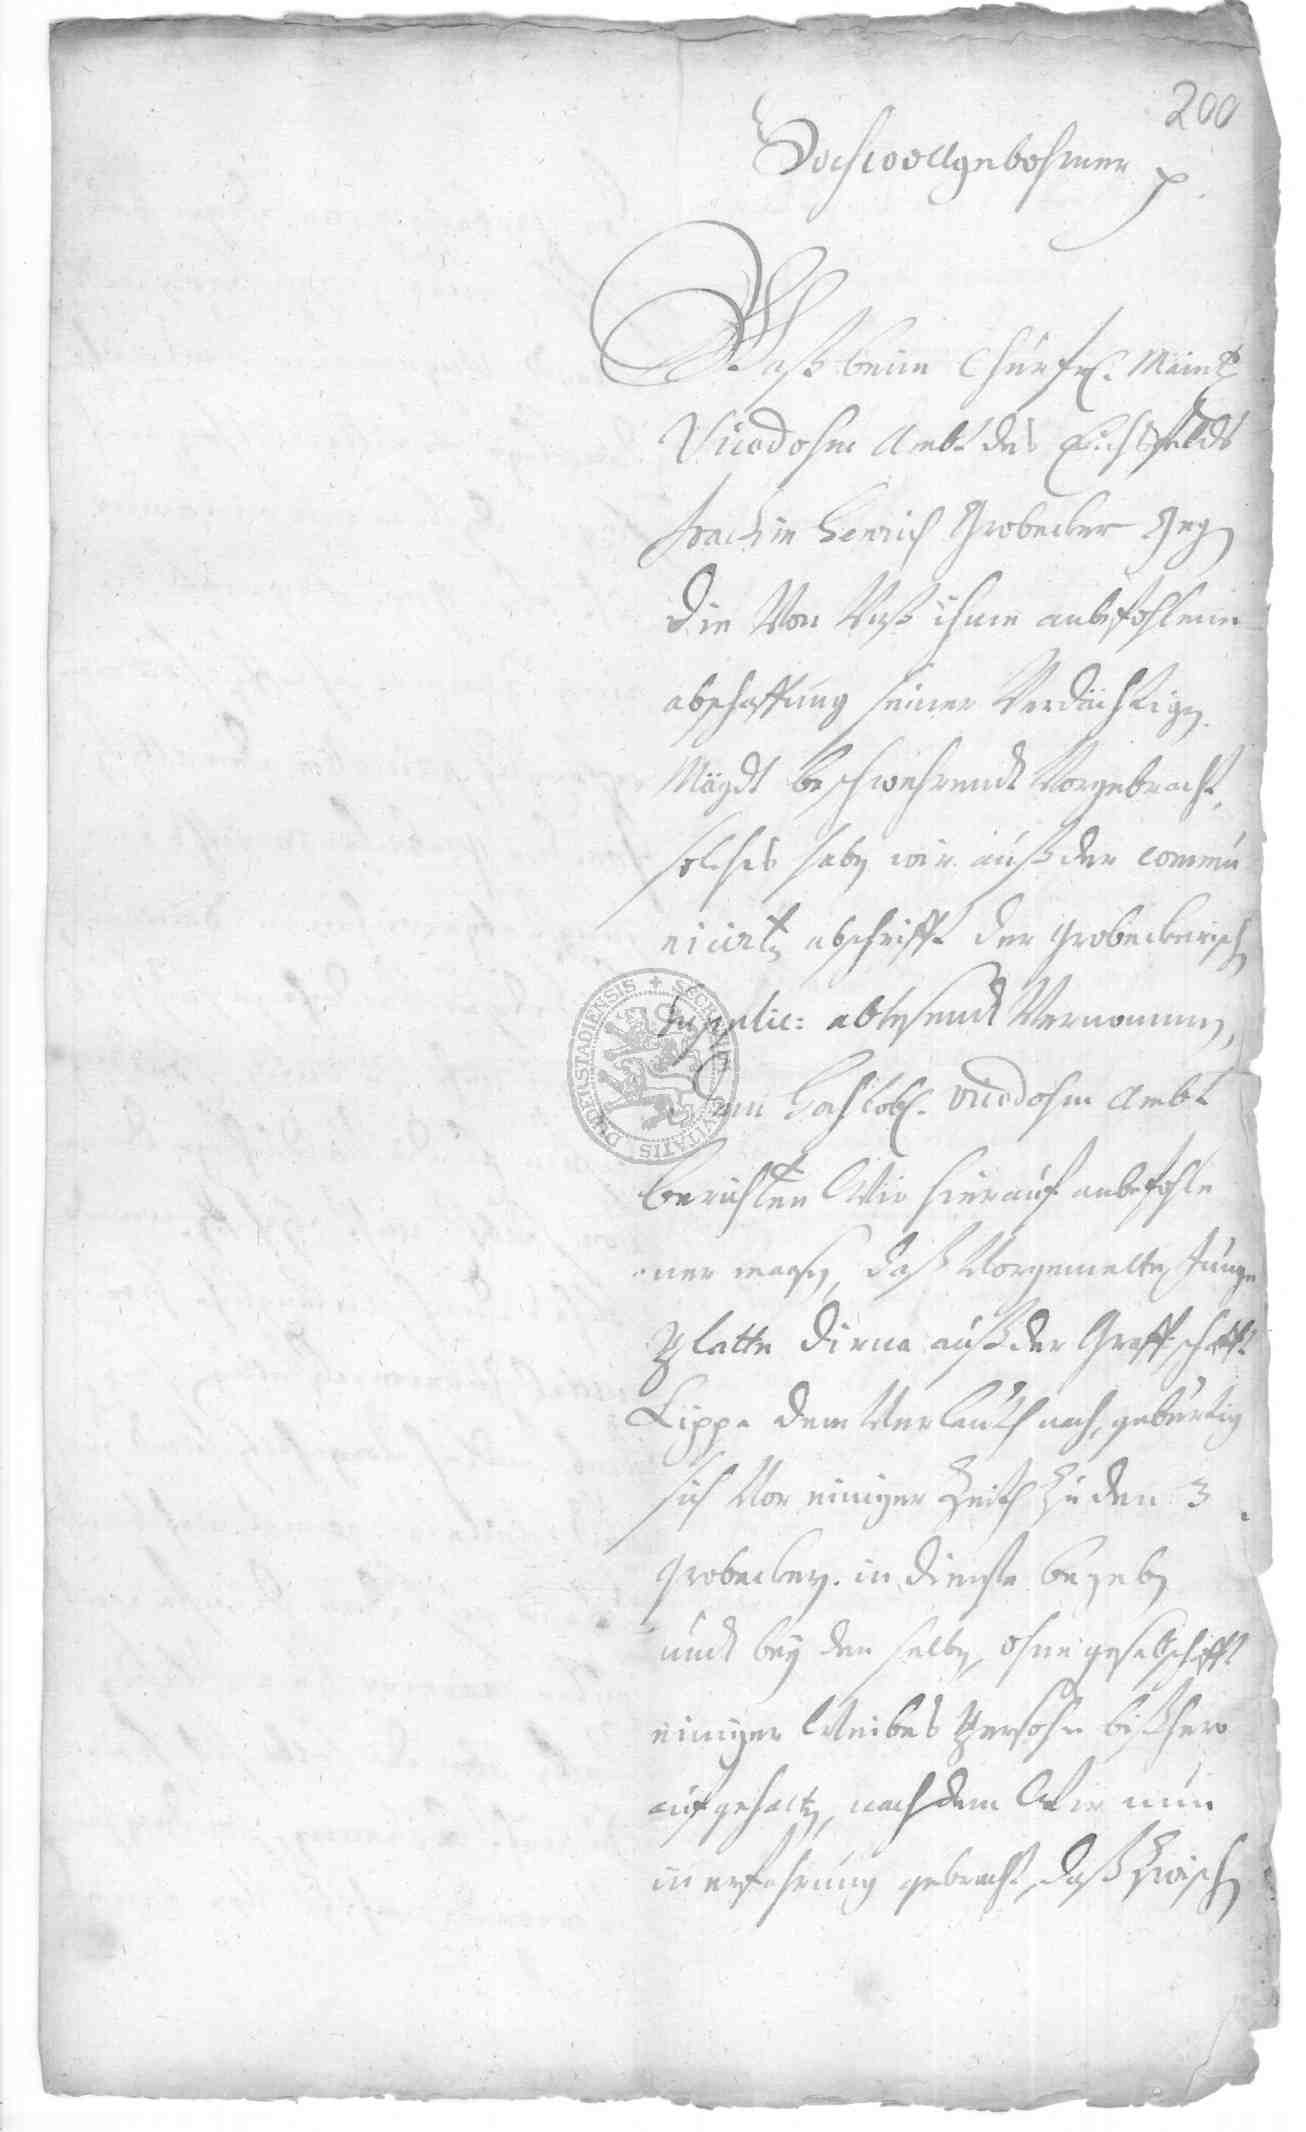 200
Hochwollgebohrner p.
Waß beim Churfl. Maintz
Vicedohm Ambt des Eichsfeldts
Joachim Henrich Grobecker gegen
die Von Unß ihme anbefohlene
abschaffung seiner Verdächtigen
Mägdt beschwehrendt Vorgebracht,
solches haben wir auß der commu
nicirten abschrifft der Grobeckerischen
Supplic: ablesendt Vernommen,
Hochlobl. Vicedohm Ambt
berichten Wir hierauf anbefohle
ner maßen, daß Vorgemelte Junge
glatte Dirne auß der Graffschafft
Lippe dem Verlauth nach, gebürtig
sich Vor einiger Zeith zu den 3
Grobeckern in dienste begeben
undt bey denselben, ohne geselschafft
einiger Weibes Persohn bißhero
aufgehalten, nachdem Wir nun
in erfahrung gebracht, daß zwischen
SECR CIVITATIS DUDERSTADIENSIS